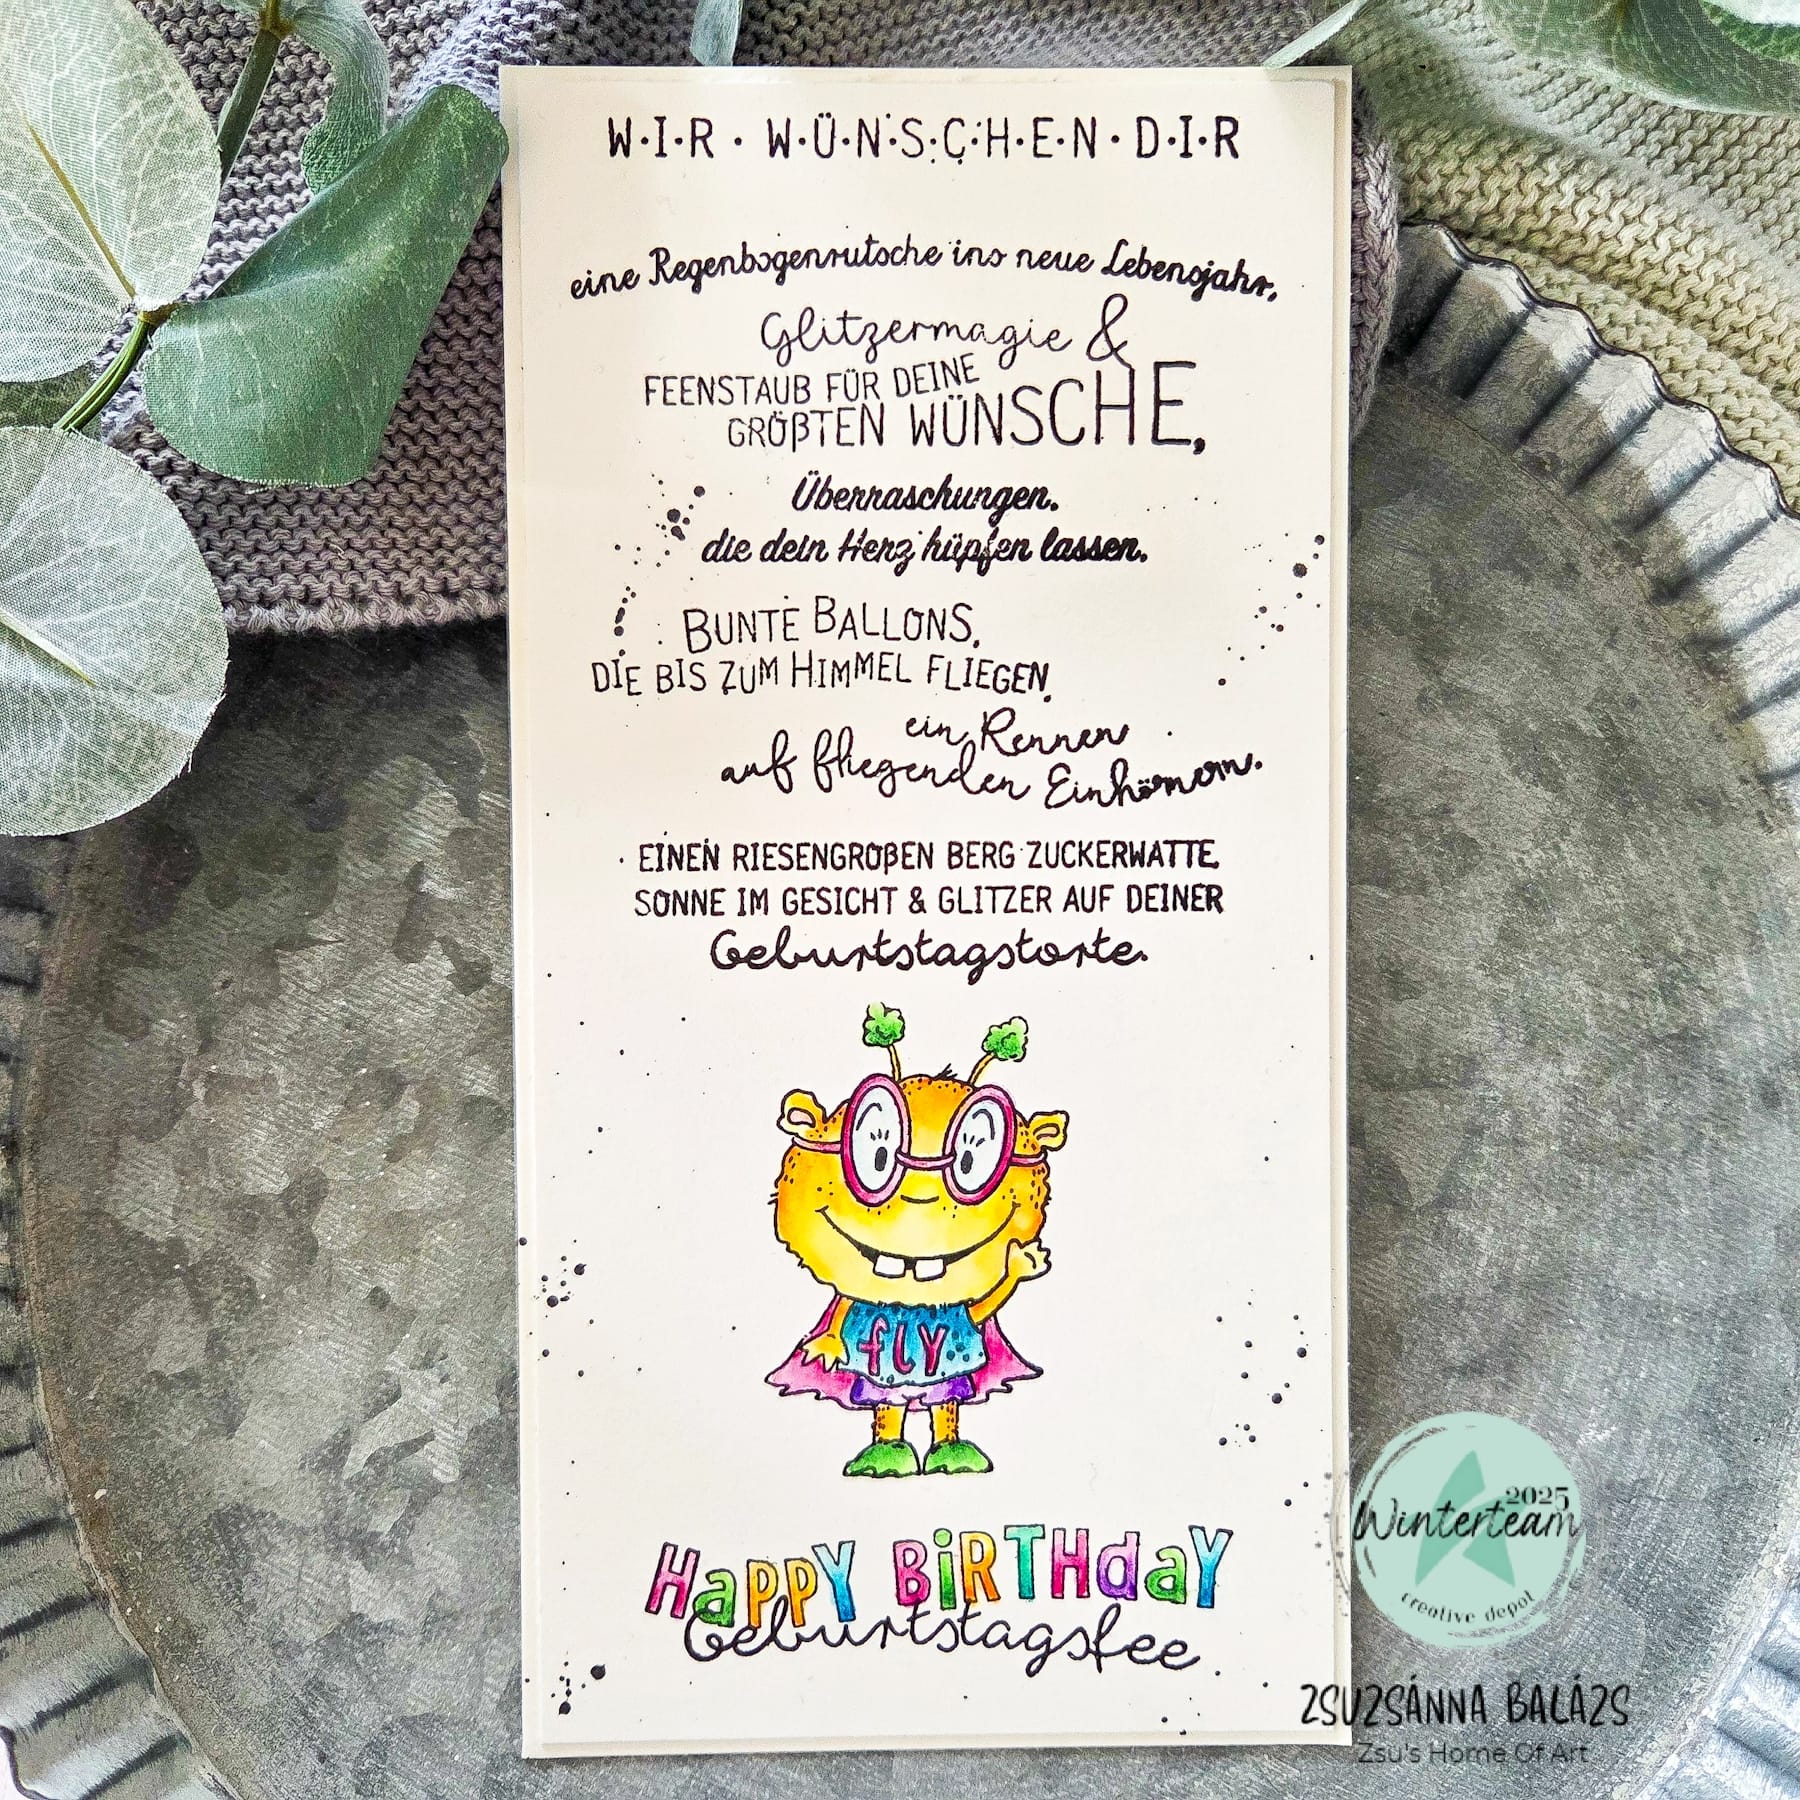 W·I·R · W·Ü·N·S·C·H·E·N · D·I·R
eine Regenbogenrutsche ins neue Lebensjahr,
Glitzermagie &
FEENSTAUB FÜR DEINE
GRÖßTEN WÜNSCHE,
Überraschungen,
die dein Herz hüpfen lassen,
BUNTE BALLONS,
DIE BIS ZUM HIMMEL FLIEGEN,
ein Rennen
auf fliegenden Einhörnern,
EINEN RIESENGROßEN BERG ZUCKERWATTE,
SONNE IM GESICHT & GLITZER AUF DEINER
Geburtstagstorte.
fly
HaPPY BiRTHdaY
Geburtstagsfee
2025
Winterteam
creative depot
ZSUZSÁNNA BALÁZS
Zsu's Home Of Art